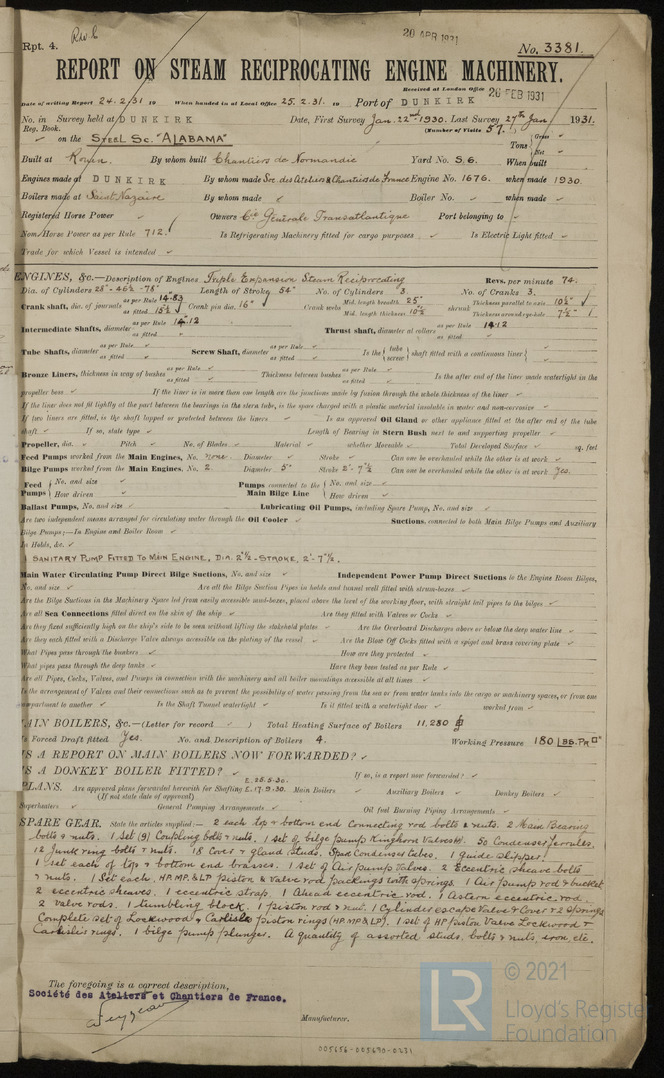 Rpt. 4.
20 APR 1931
No. 3381.
REPORT ON STEAM RECIPROCATING ENGINE MACHINERY.
Received at London Office 26 FEB 1931
Date of writing Report 24.2.31 19 When handed in at Local Office 25.2.31. 19 Port of DUNKIRK
No. in Survey held at DUNKIRK Date, First Survey Jan. 22nd 1930. Last Survey 27th Jan 1931.
Reg. Book. (Number of Visits 57.)
on the STEEL SC. "ALABAMA" Tons { Gross
Net
Built at Rouen. By whom built Chantiers de Normandie Yard No. 56. When built
Engines made at DUNKIRK By whom made Soc. des Ateliers & Chantiers de France Engine No. 1676. when made 1930.
Boilers made at Saint Nazaire By whom made Boiler No. when made
Registered Horse Power Owners Cie Générale Transatlantique Port belonging to
Nom. Horse Power as per Rule 712. Is Refrigerating Machinery fitted for cargo purposes Is Electric Light fitted
Trade for which Vessel is intended
ENGINES, &c.—Description of Engines Triple Expansion Steam Reciprocating Revs. per minute 74.
Dia. of Cylinders 28" - 46½ - 78" Length of Stroke 54" No. of Cylinders 3. No. of Cranks 3.
Crank shaft, dia. of journals as per Rule 14.83 as fitted 15½ Crank pin dia. 16" Crank webs Mid. length breadth 25" Mid. length thickness 10½ shrunk Thickness parallel to axis 10½" Thickness around eye-hole 7½"
Intermediate Shafts, diameter as per Rule 14.12 as fitted Thrust shaft, diameter at collars as per Rule 14.12 as fitted
Tube Shafts, diameter as per Rule as fitted Screw Shaft, diameter as per Rule as fitted Is the { tube screw } shaft fitted with a continuous liner {
Bronze Liners, thickness in way of bushes as per Rule as fitted Thickness between bushes as per Rule as fitted Is the after end of the liner made watertight in the
propeller boss If the liner is in more than one length are the junctions made by fusion through the whole thickness of the liner
If the liner does not fit tightly at the part between the bearings in the stern tube, is the space charged with a plastic material insoluble in water and non-corrosive
If two liners are fitted, is the shaft lapped or protected between the liners Is an approved Oil Gland or other appliance fitted at the after end of the tube
shaft If so, state type Length of Bearing in Stern Bush next to and supporting propeller
Propeller, dia. Pitch No. of Blades Material whether Moveable Total Developed Surface sq. feet
Feed Pumps worked from the Main Engines, No. none. Diameter Stroke Can one be overhauled while the other is at work
Bilge Pumps worked from the Main Engines, No. 2. Diameter 5" Stroke 2'-7½ Can one be overhauled while the other is at work Yes.
Feed Pumps { No. and size How driven Pumps connected to the Main Bilge Line { No. and size How driven
Ballast Pumps, No. and size Lubricating Oil Pumps, including Spare Pump, No. and size
Are two independent means arranged for circulating water through the Oil Cooler Suctions, connected to both Main Bilge Pumps and Auxiliary
Bilge Pumps;—In Engine and Boiler Room
In Holds, &c.
1 SANITARY PUMP FITTED TO MAIN ENGINE, DIA. 2½ - STROKE, 2'-7½.
Main Water Circulating Pump Direct Bilge Suctions, No. and size Independent Power Pump Direct Suctions to the Engine Room Bilges,
No. and size Are all the Bilge Suction Pipes in holds and tunnel well fitted with strum-boxes
Are the Bilge Suctions in the Machinery Space led from easily accessible mud-boxes, placed above the level of the working floor, with straight tail pipes to the bilges
Are all Sea Connections fitted direct on the skin of the ship Are they fitted with Valves or Cocks
Are they fixed sufficiently high on the ship's side to be seen without lifting the stokehold plates Are the Overboard Discharges above or below the deep water line
Are they each fitted with a Discharge Valve always accessible on the plating of the vessel Are the Blow Off Cocks fitted with a spigot and brass covering plate
What Pipes pass through the bunkers How are they protected
What pipes pass through the deep tanks Have they been tested as per Rule
Are all Pipes, Cocks, Valves, and Pumps in connection with the machinery and all boiler mountings accessible at all times
Is the arrangement of Valves and their connections such as to prevent the possibility of water passing from the sea or from water tanks into the cargo or machinery spaces, or from one
compartment to another Is the Shaft Tunnel watertight Is it fitted with a watertight door worked from
MAIN BOILERS, &c.—(Letter for record ) Total Heating Surface of Boilers 11,280
Is Forced Draft fitted Yes. No. and Description of Boilers 4. Working Pressure 180 LBS. PR □"
IS A REPORT ON MAIN BOILERS NOW FORWARDED?
IS A DONKEY BOILER FITTED? If so, is a report now forwarded?
PLANS. Are approved plans forwarded herewith for Shafting E.28.5.30. E.17.9.30. Main Boilers Auxiliary Boilers Donkey Boilers
(If not state date of approval)
Superheaters General Pumping Arrangements Oil fuel Burning Piping Arrangements
SPARE GEAR. State the articles supplied:— 2 each top & bottom end Connecting rod bolts & nuts. 2 Main Bearing
bolts & nuts. 1 Set (9) Coupling bolts & nuts. 1 set of bilge pump Kinghorn Valves. 50 Condenser ferrules.
12 Junk ring bolts & nuts. 18 Cover & gland studs. Spare Condenser tubes. 1 guide slipper.
1 set each of top & bottom end brasses. 1 set of Air pump Valves. 2 Eccentric sheave bolts
& nuts. 1 Set each, HP. MP. & LP piston & valve rod packings with springs. 1 Air pump rod & bucket
2 eccentric sheaves. 1 eccentric strap. 1 Ahead eccentric rod. 1 Astern eccentric rod.
2 valve rods. 1 tumbling block. 1 piston rod & nut. 1 Cylinder escape Valve & Cover & 2 springs
Complete set of Lockwood & Carlisle piston rings (HP. MP & LP). 1 set of HP piston Valve Lockwood &
Carlisle rings. 1 bilge pump plunger. A quantity of assorted studs, bolts & nuts, iron, etc.
The foregoing is a correct description,
Société des Ateliers et Chantiers de France.
Manufacturer.
© 2021
LR
Lloyd's Register
Foundation
005656-005690-0231